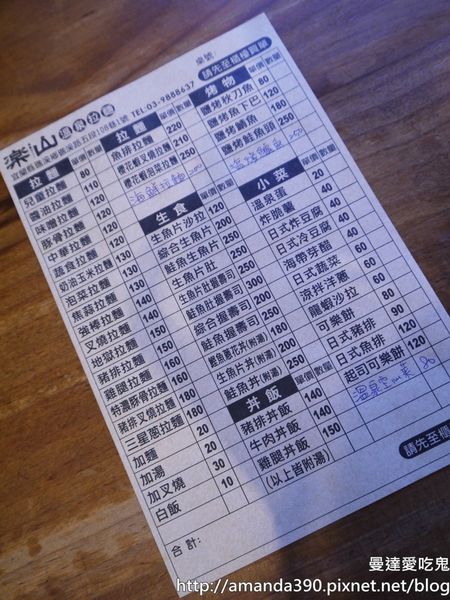 樂山 溫泉拉麵
宜蘭縣礁溪鄉礁溪路五段108巷1號 TEL:03-9888637
桌號:
請先至櫃檯買單
拉麵 單價 數量
兒童拉麵 80
醬油拉麵 110
味噌拉麵 120
豚骨拉麵 120
中華拉麵 120
蔬食拉麵 120
奶油玉米拉麵 130
泡菜拉麵 130
焦蒜拉麵 130
強棒拉麵 140
叉燒拉麵 140
地獄拉麵 150
豬排拉麵 150
雞腿拉麵 160
特濃豚骨拉麵 160
豬排叉燒拉麵 180
三星蔥拉麵 180
加麵 20
加湯 20
加叉燒 30
白飯 10
合計:
拉麵 單價 數量
魚排拉麵 220
櫻花蝦叉燒拉麵 210
櫻花蝦泡菜拉麵 250
海鮮拉麵 200
生食 單價 數量
生魚片沙拉 120
綜合生魚片 200
鮭魚生魚片 250
生魚片肚 250
生魚片肚握壽司 250
鮭魚肚握壽司 300
綜合握壽司 200
鮭魚握壽司 250
生魚片丼(附湯) 250
鮭魚丼(附湯) 250
丼飯 單價 數量
豬排丼飯 140
牛肉丼飯 140
雞腿丼飯 150
(以上皆附湯)
烤物 單價 數量
鹽烤秋刀魚 80
鹽烤魚下巴 120
鹽烤鯖魚 120
鹽烤鮭魚頭 180
小菜 單價 數量
溫泉蛋 20
炸脆薯 40
日式炸豆腐 40
日式冷豆腐 20
海帶芽醋 40
日式蔬菜 60
涼拌洋蔥 40
龍蝦沙拉 60
可樂餅 80
日式豬排 90
日式魚排 120
起司可樂餅 120
請先至櫃
曼達愛吃鬼
http://amanda390.pixnet.net/blog